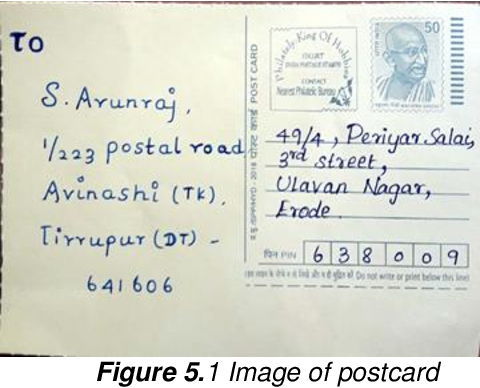 TO
S. Arunraj,
1/223 postal road
Avinashi (TK).
Tirrupur (DT) -
641606
POST CARD
Philately King Of Hobbies
COLLECT
INDIA POSTAGE STAMPS
CONTACT
Nearest Philatelic Bureau
50
49/4, Periyar Salai,
3rd street,
Ulavan Nagar,
Erode.
पिन PIN 638009
Do not write or print below this line
Figure 5.1 Image of postcard